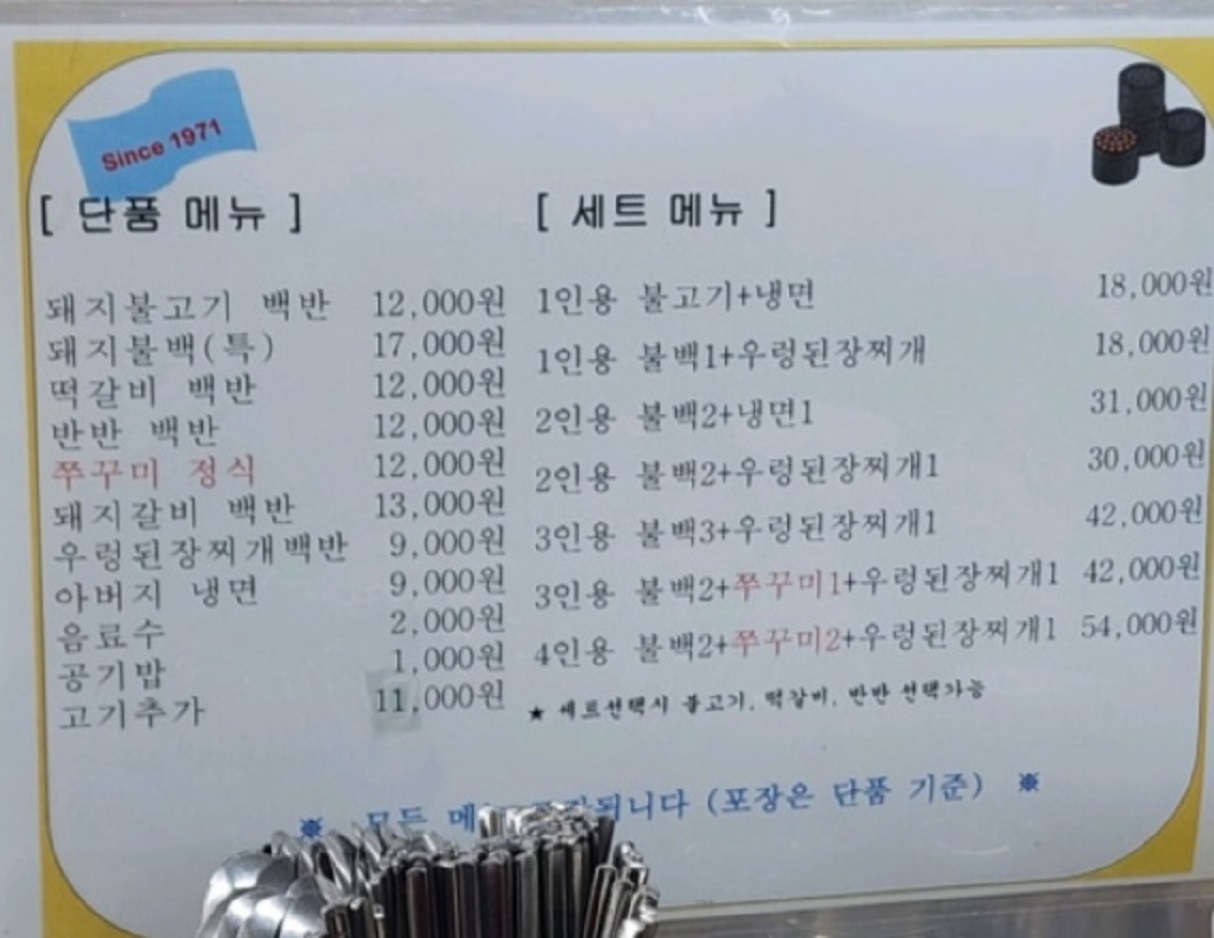 Since 1971
[ 단품 메뉴 ]
돼지불고기 백반 12,000원
돼지불백(특) 17,000원
떡갈비 백반 12,000원
반반 백반 12,000원
쭈꾸미 정식 12,000원
돼지갈비 백반 13,000원
우렁된장찌개백반 9,000원
아버지 냉면 9,000원
음료수 2,000원
공기밥 1,000원
고기추가 11,000원
[ 세트 메뉴 ]
1인용 불고기+냉면 18,000원
1인용 불백1+우렁된장찌개 18,000원
2인용 불백2+냉면1 31,000원
2인용 불백2+우렁된장찌개1 30,000원
3인용 불백3+우렁된장찌개1 42,000원
3인용 불백2+쭈꾸미1+우렁된장찌개1 42,000원
4인용 불백2+쭈꾸미2+우렁된장찌개1 54,000원
★ 세트선택시 불고기, 떡갈비, 반반 선택가능
※ 모든 (포장은 단품 기준) ※